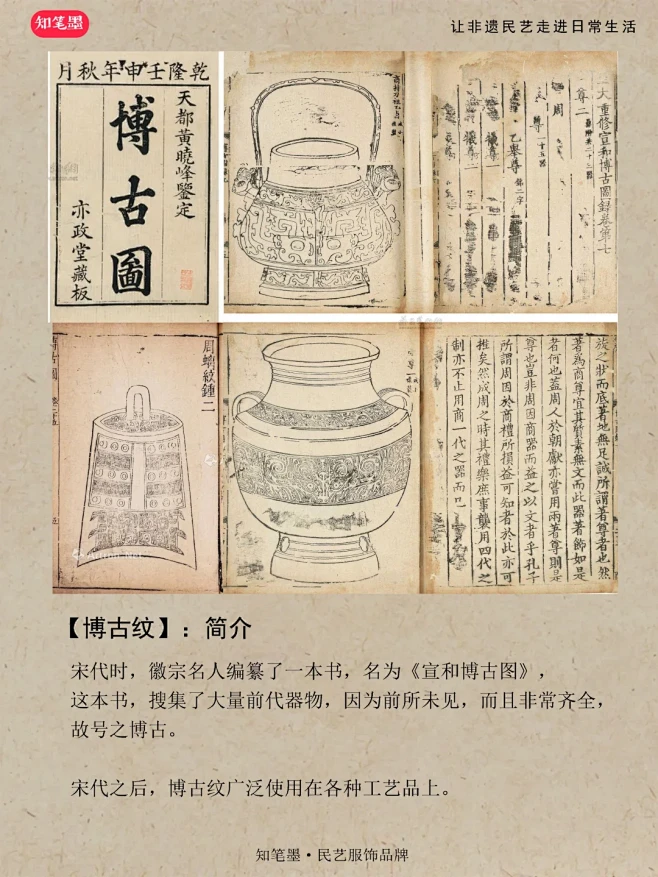 知笔墨
让非遗民艺走进日常生活
乾隆壬申年秋月
天都黃曉峰鑒定
博古圖
亦政堂藏板
大重修宣和博古圖錄卷第七
尊二
周
乙舉尊
周蟠紋鍾二
旋之狀而底著地無足誠所謂著尊者也然
著為商尊宜其質素無文而此器著飾如是
者何也蓋周人於朝獻亦嘗用兩著尊則是
尊也豈非周因商器而益之以文者乎孔子
所謂周因於商禮所損益可知者於此亦可
推矣然成周之時其禮樂庶事襲用四代之
制亦不止用商一代之器而已
【博古纹】：简介
宋代时，徽宗名人编纂了一本书，名为《宣和博古图》，
这本书，搜集了大量前代器物，因为前所未见，而且非常齐全，
故号之博古。
宋代之后，博古纹广泛使用在各种工艺品上。
知笔墨·民艺服饰品牌